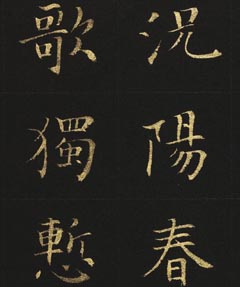 況陽春
歌獨慙